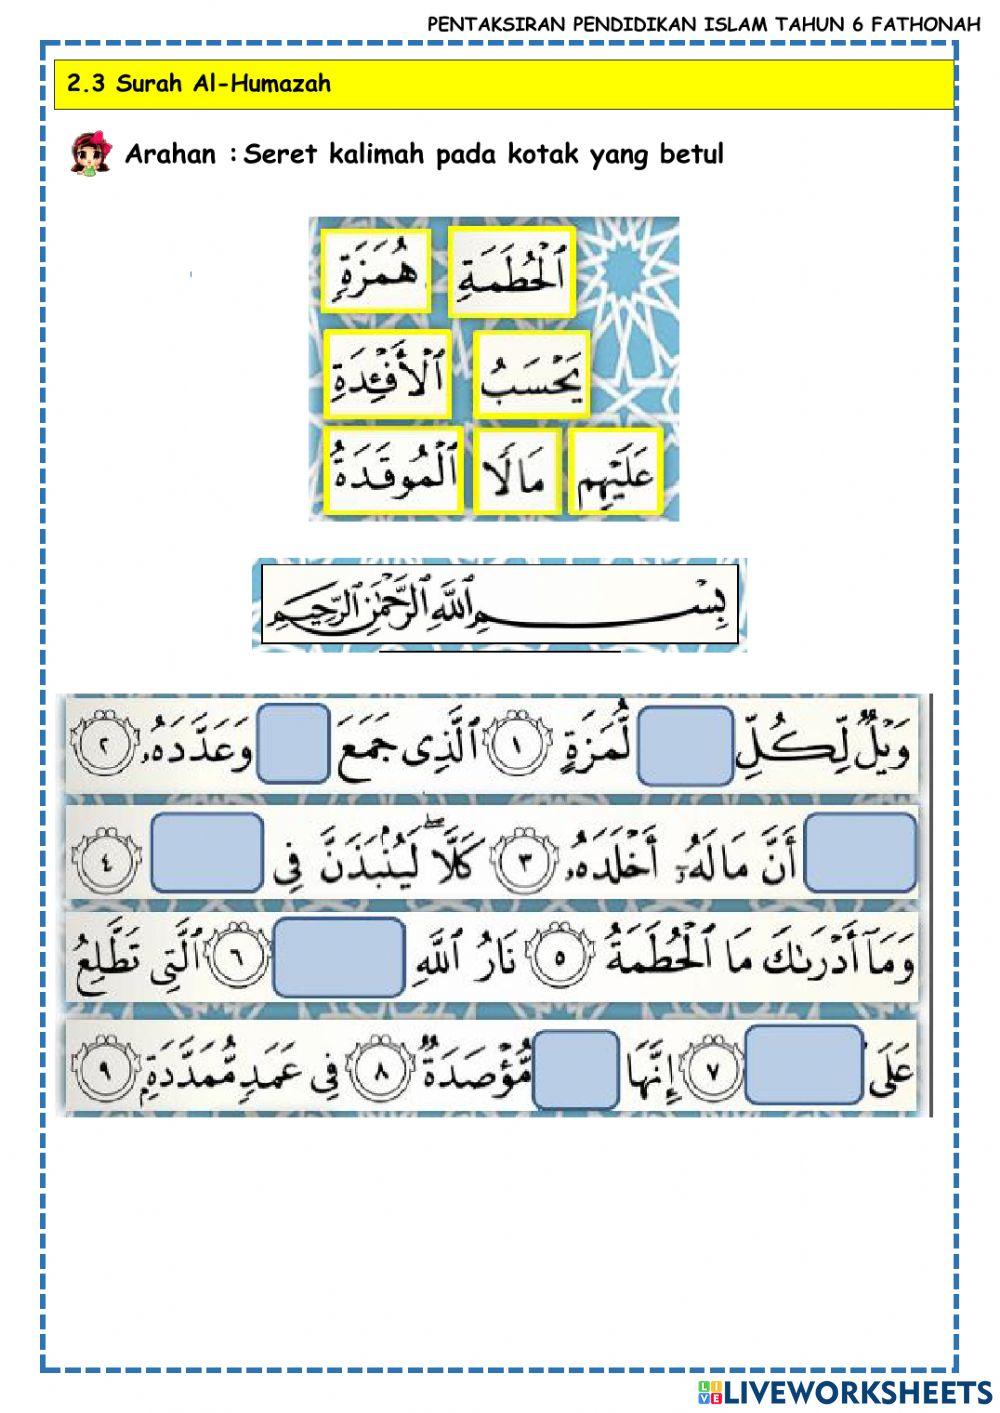 PENTAKSIRAN PENDIDIKAN ISLAM TAHUN 6 FATHONAH
2.3 Surah Al-Humazah
Arahan : Seret kalimah pada kotak yang betul
ٱلْحُطَمَةِ هُمَزَةٍ
يَحْسَبُ ٱلْأَفْـِٔدَةِ
عَلَيْهِم مَالًا ٱلْمُوقَدَةُ
بِسْمِ ٱللَّهِ ٱلرَّحْمَٰنِ ٱلرَّحِيمِ
وَيْلٌ لِّكُلِّ لُّمَزَةٍ ١ ٱلَّذِى جَمَعَ وَعَدَّدَهُۥ ٢
أَنَّ مَالَهُۥٓ أَخْلَدَهُۥ ٣ كَلَّا ۖ لَيُنۢبَذَنَّ فِى ٤
وَمَآ أَدْرَىٰكَ مَا ٱلْحُطَمَةُ ٥ نَارُ ٱللَّهِ ٦ ٱلَّتِى تَطَّلِعُ
عَلَى ٧ إِنَّهَا مُّؤْصَدَةٌ ٨ فِى عَمَدٍ مُّمَدَّدَةٍۭ ٩
LIVEWORKSHEETS